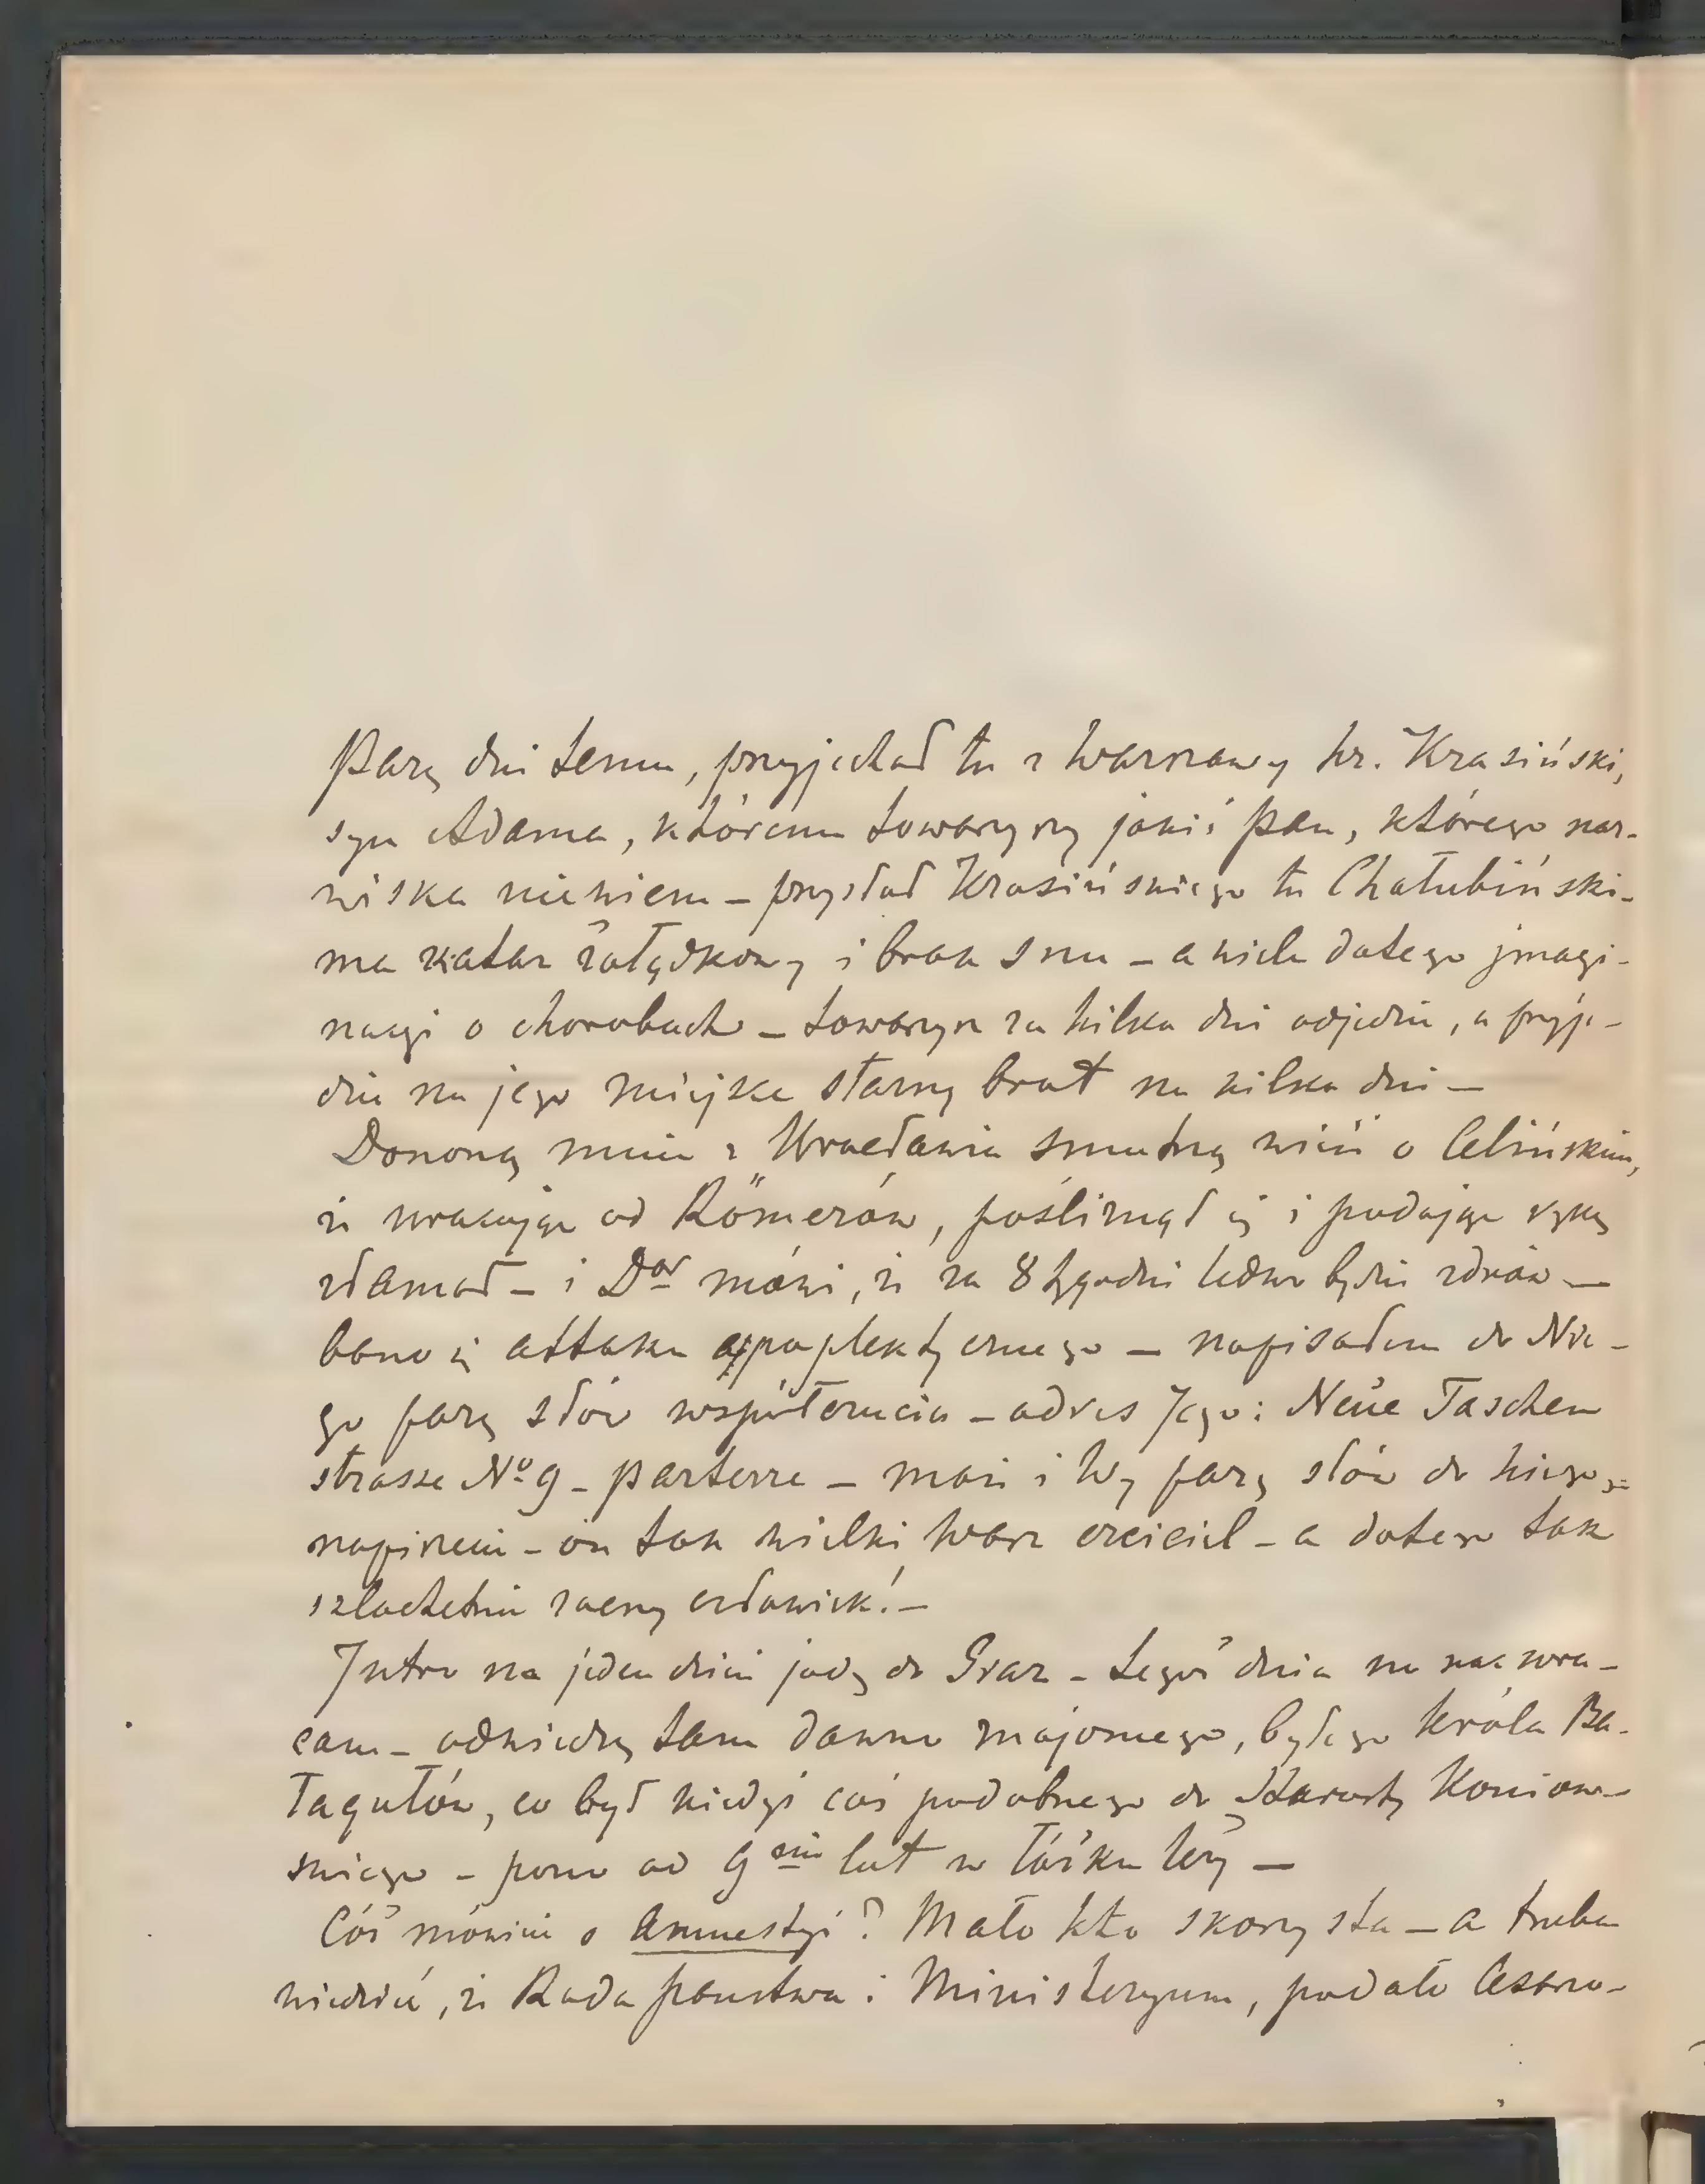 Parę dni temu, przyjechał tu z Warszawy hr. Krasiński,
syn Adama, któremu towarzyszy jakiś Pan, którego naz-
wiska niewiem – przysłał Krasińskiego tu Chałubiński –
ma katar żołądkowy i brak snu – a wiele dotego jmagi-
nacyi o chorobach – towarzysz za kilka dni odjedzie, a przyje-
dzie na jego miejsce starszy brat na kilka dni –
Donoszą mnie z Wrocławia smutną wieść o Celińskim,
że wracając od Römerów, pośliznął się i padając rękę
złamał – i Dor mówi, że za 8 tygodni ledwo będzie zdrów –
bano się attaku apoplektycznego – napisałem do Nie-
go parę słów współczucia – adres Jego: Neue Taschen
strasse No 9 – parterre – może i Wy parę słów do niego
napiszecie – on tak wielki Wasz czciciel – a dotego tak
szlachetnie zacny człowiek! –
Jutro na jeden dzień jadę do Graz – tegoż dnia na noc wra-
cam – odwiedzę tam dawno znajomego, byłego króla Ba-
tagułów, co był kiedyś coś podobnego do Starosty Koniow-
skiego – pono od 9ciu lat w łóżku leży –
Cóż mówicie o Amnestyi? Mało kto skorzysta – a trzeba
wiedzieć, że Rada państwa i Ministeryum, podało Cesarzo-